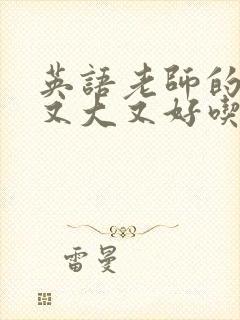 英語老師的
又大又好喫
雷曼